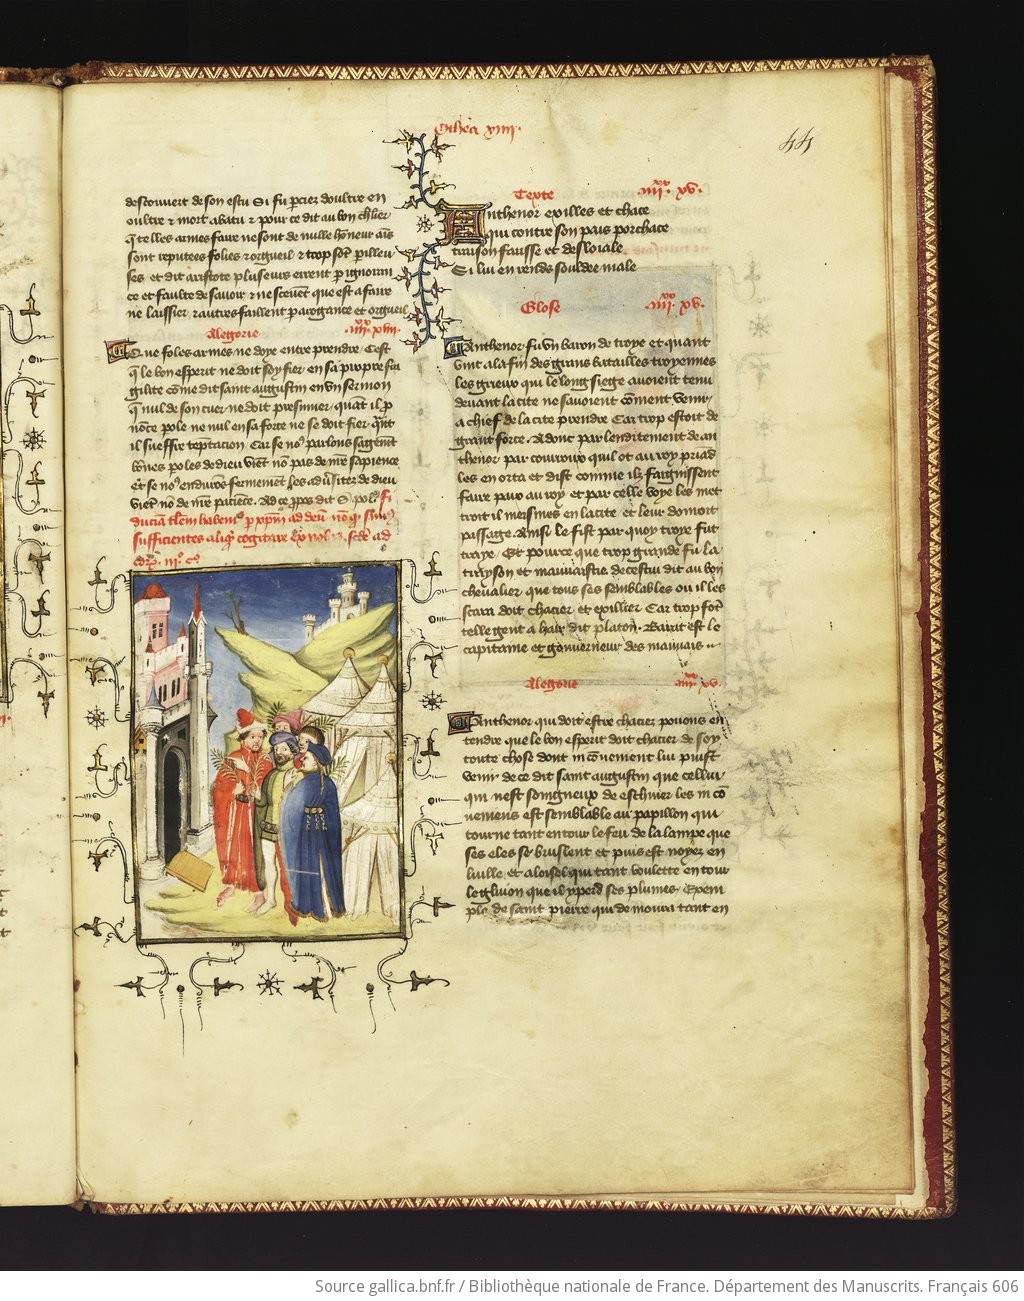 Othea xiiii.
44
descouvert de son escu Si fu perciez doultre en
oultre ⁊ mort abatu ⁊ pour ce dit au bon chlier
q̄ telles armes faire ne sont de nulle honneur ains
sont reputees folies ⁊ orgueil ⁊ trop sōt pilleu
ses et dit aristote plusieurs errent p ignoran
ce et faulte de savoir ⁊ ne scevēt que est a faire
ne laissier ⁊ autres faillent p arogance et orgueil
Alegorie iiii xx xiiii.
Que foles armes ne doye entreprendre Cest
q̄ le bon esperit ne doit soy fier en sa propre fra
gilite cōme dit saint augustin en un sermon
q̄ nul de son cuer ne doit presumer quāt il p
nōce pole ne nul en sa force ne se doit fier quāt
il sueffre teptacion Car se noꝰ parlons sagemt
bōnes poles de dieu viēt nō pas de nrē sapience
Et se noꝰ endurōs fermemēt les adūsitez de dieu
viēt nō de nrē patiēce. Ad ce pps dit S. polꝰ Fi
duciā tlem habemꝰ p xpm ad deū nō q simꝰ
sufficientes aliqd cogitare ex nobis. scde ad
cor. iiiᵒ cᵒ
Texte iiii xx xv.
Anthenor exilles et chace
qui contre son pais porchace
traison fausse et desloiale
Si lui en rends souldee male
Glose iiii xx xv.
Anthenor fu un baron de troye et quant
vint a la fin des grans batailles troyennes
les grieux qui le long siege avoient tenu
devant la cite ne savoient cōment venir
a chief de la cite prendre Car trop estoit de
grant force. Adonc par lenditement de an
thenor par courroux quil ot au roy priad
les en orta et dist comme ilz faignissent
faire paix au roy et par celle voye les met
troit il meismes en la cite et leur donroit
passage. Ainsi le fist par quoy troye fut
traye Et pource que trop grande fu la
trayson et mauvaistie de cestui dit au bon
chevalier que tous ses semblables ou il les
scara doit chacier et exillier Car trop font
telle gent a hair dit platon. Barat est le
capitaine et gouverneur des mauvais
Alegorie iiii xx xv.
Anthenor qui doit estre chaciez povons en
tendre que le bon esperit doit chacier de soy
toute chose dont in cōvenient lui puist
venir de ce dit saint augustin que cellui
qui nest soingneux de eschiver les in cō
veniens est semblable au papillon qui
tourne tant entour le feu de la lampe que
ses eles se bruslent et puis est noyez en
luille et a loisel qui tant voulette entour
le gluion que il y perd ses plumes. Exem
ple de saint pierre qui demoura tant en
Source gallica.bnf.fr / Bibliothèque nationale de France. Département des Manuscrits. Français 606